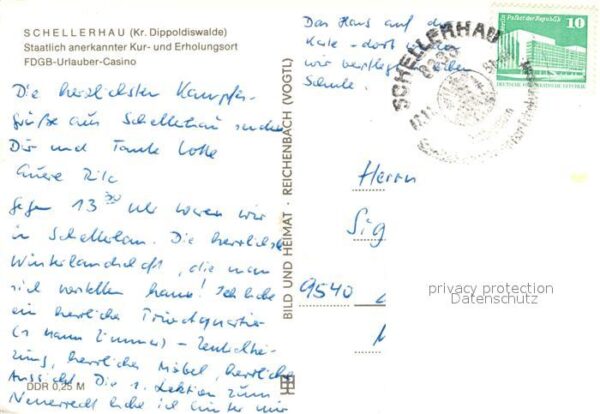 SCHELLERHAU (Kr. Dippoldiswalde)
Staatlich anerkannter Kur- und Erholungsort
FDGB-Urlauber-Casino
Die herzlichsten Kampfes-
grüße aus Schellerhau senden
Dir und Tante Lotte
Eure
Gegen 13 30 Uhr waren wir
in Schellerhau. Die herrlichste
Winterlandschaft, die man
sich vorstellen kann! Ich habe
ein herrliches Privatquartier
(1 Mann Zimmer) - Zentralhei-
zung, herrliche Möbel, herrliche
Aussicht. Die 1. Lektion zum
Neuerrecht habe ich hinter mir
DDR 0,25 M
BILD UND HEIMAT · REICHENBACH (VOGTL)
Das Haus auf der
Karte - dort werden
wir verpflegt, neben
Schule.
SCHELLERHAU
8239
Palast der Republik
10
DEUTSCHE DEMOKRATISCHE REPUBLIK
Herrn
Sig
9540
privacy protection
Datenschutz